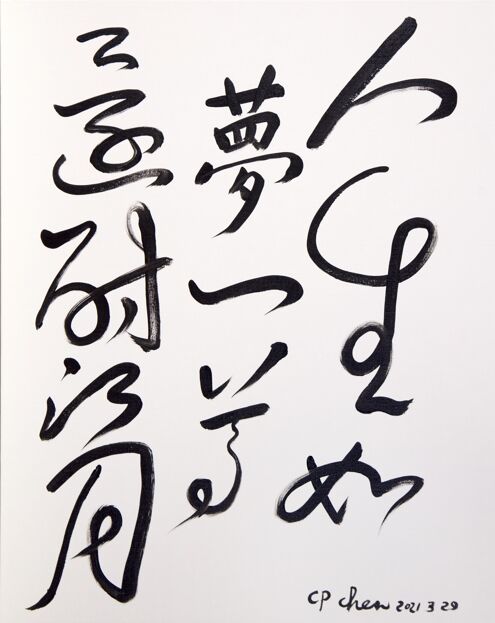 人生如
夢一尊
還酹江月
CP Chen 2021 3 29